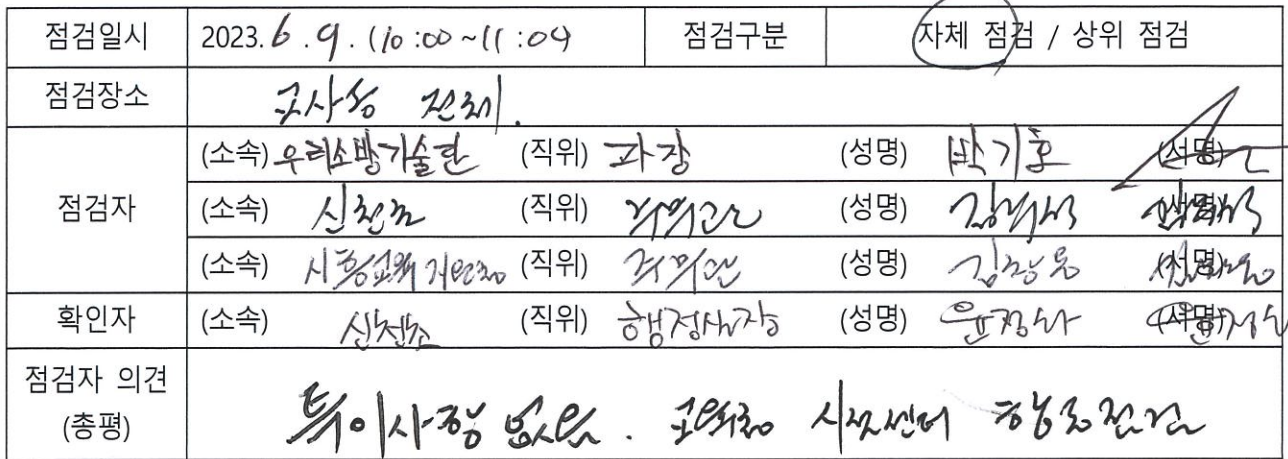 점검일시 2023. 6. 9. (10:00 ~ 11:00) 점검구분 자체 점검 / 상위 점검
점검장소 교사동 전체.
(소속) 우리소방기술단 (직위) 과장 (성명) 박기호 (서명)
점검자 (소속) 신천초 (직위) 주무관 (성명) (서명)
(소속) 시흥교육지원청 (직위) 주무관 (성명) (서명)
확인자 (소속) 신천초 (직위) 행정실장 (성명) (서명)
점검자 의견
(총평) 특이사항 없음. 교육청 시설센터 합동점검